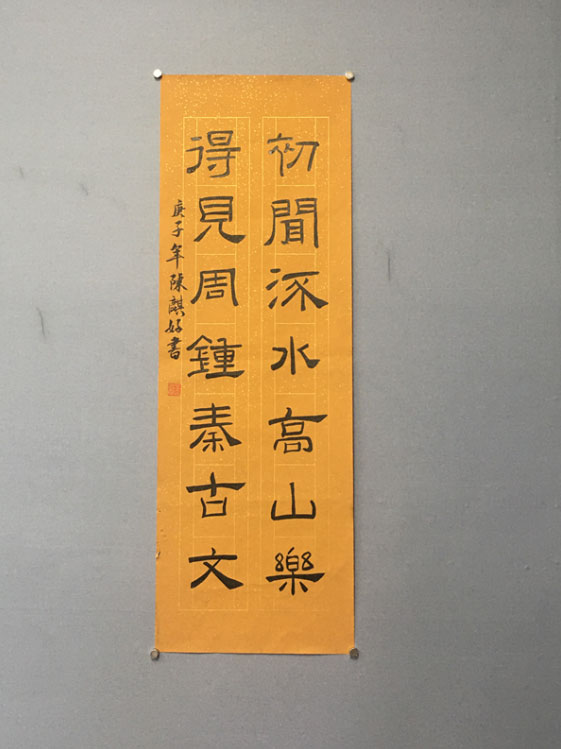 初聞流水高山樂
得見周鍾秦古文
庚子年陳麒好書